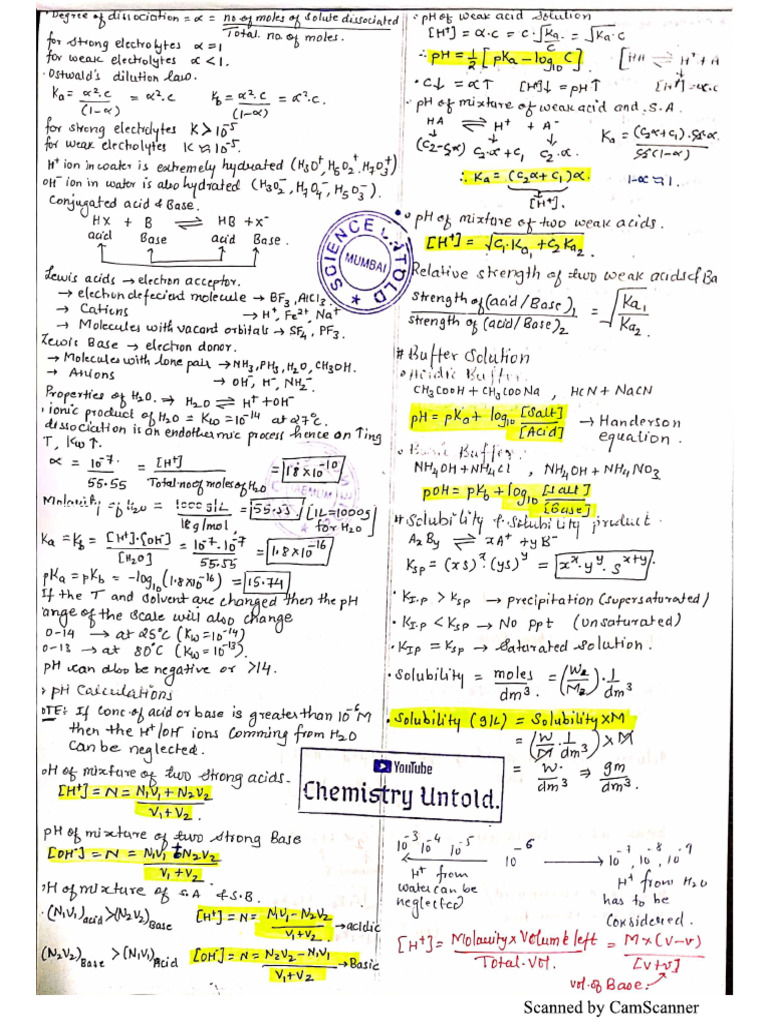 Degree of dissociation = α = no of moles of solute dissociated / Total no. of moles.
for strong electrolytes α = 1
for weak electrolytes α < 1.
Ostwald's dilution law.
Ka = α².c / (1-α) = α².c    Kb = α².c / (1-α) = α².c.
for strong electrolytes K > 10⁻⁵
for weak electrolytes K ≈ 10⁻⁵.
H⁺ ion in water is extremely hydrated (H₃O⁺, H₅O₂⁺, H₇O₃⁺)
OH⁻ ion in water is also hydrated (H₃O₂⁻, H₇O₄⁻, H₅O₃⁻).
Conjugated acid & Base.
HX + B ⇌ HB + X⁻
acid Base acid Base.
Lewis acids → electron acceptor.
→ electron defecient molecule → BF₃, AlCl₃.
→ Cations → H⁺, Fe²⁺, Na⁺
→ Molecules with vacant orbitals → SF₄, PF₃.
Lewis Base → electron donor.
→ Molecules with lone pair → NH₃, PH₃, H₂O, CH₃OH.
→ Anions → OH⁻, H⁻, NH₂⁻
Properties of H₂O. → H₂O ⇌ H⁺ + OH⁻
ionic product of H₂O = Kw = 10⁻¹⁴ at 27°C.
dissociation is an endothermic process hence on Ting
T, Kw↑.
α = 10⁻⁷ / 55.55 = [H⁺] / Total no of moles of H₂O = 1.8 × 10⁻¹⁰
Molarity of H₂O = 1000 g/L / 18 g/mol = 55.55 / [1L = 1000g for H₂O]
Ka = Kb = [H⁺].[OH⁻] / [H₂O] = 10⁻⁷.10⁻⁷ / 55.55 = 1.8 × 10⁻¹⁶
pKa = pKb = -log₁₀(1.8 × 10⁻¹⁶) = 15.74
If the T and solvent are changed then the pH
ange of the scale will also change
0-14 → at 25°C (Kw = 10⁻¹⁴)
0-13 → at 80°C (Kw = 10⁻¹³).
pH can also be negative or >14.
pH Calculations
OTE: If conc of acid or base is greater than 10⁻⁶ M
then the H⁺/OH⁻ ions comming from H₂O
can be neglected.
pH of mixture of two strong acids.
[H⁺] = N = N₁V₁ + N₂V₂ / V₁ + V₂.
pH of mixture of two strong Base
[OH⁻] = N = N₁V₁ + N₂V₂ / V₁ + V₂.
pH of mixture of S.A & S.B.
(N₁V₁)acid > (N₂V₂)Base [H⁺] = N = N₁V₁ - N₂V₂ / V₁ + V₂ → acidic
(N₂V₂)Base > (N₁V₁)Acid [OH⁻] = N = N₂V₂ - N₁V₁ / V₁ + V₂ → Basic
pH of weak acid solution
[H⁺] = α.c = c.√Ka/c = √Ka.c
∴ pH = ½ [pKa - log₁₀ C] [HA ⇌ H⁺ + A
[H⁺] = α.c
C↓ = α↑ [H⁺]↓ = pH↑
pH of mixture of weak acid and S.A.
HA ⇌ H⁺ + A⁻
(C₂ - C₂α) C₂.α + C₁ C₂.α. Ka = (C₂α + C₁).C₂.α / C₂(1-α)
∴ Ka = (C₂α + C₁)α. 1-α ≈ 1.
[H⁺].
pH of mixture of two weak acids.
[H⁺] = √C₁.Ka₁ + C₂Ka₂
Relative strength of two weak acids of Ba
strength of (acid/Base)₁ / strength of (acid/Base)₂ = √Ka₁/Ka₂
# Buffer Solution
Acidic Buffer.
CH₃COOH + CH₃COONa, HCN + NaCN
pH = pKa + log₁₀ [Salt] / [Acid] → Handerson equation.
Basic Buffer.
NH₄OH + NH₄Cl, NH₄OH + NH₄NO₃
pOH = pKb + log₁₀ [Salt] / [Base]
# Solubility & Solubility product.
A₂By ⇌ xA⁺ + yB⁻
Ksp = (xs)ˣ.(ys)ʸ = xˣ.yʸ.sˣ⁺ʸ
KI.P > Ksp → precipitation (supersaturated)
KI.P < Ksp → No ppt (unsaturated)
KIP = Ksp → Saturated solution.
Solubility = moles / dm³. = (W₂/M₂).1/dm³
Solubility (g/L) = Solubility × M
= (W/M . 1/dm³) × M
= W. / dm³ ⇒ gm / dm³.
10⁻³ 10⁻⁴ 10⁻⁵ 10⁻⁶ 10⁻⁷, 10⁻⁸, 10⁻⁹
H⁺ from water can be neglected
H⁺ from H₂O has to be considered.
[H⁺] = Molarity × Volume left / Total vol. = M × (V-v) / [V+v]
vol. of Base.
SCIENCE UNTOLD
MUMBAI
YouTube
Chemistry Untold.
Scanned by CamScanner